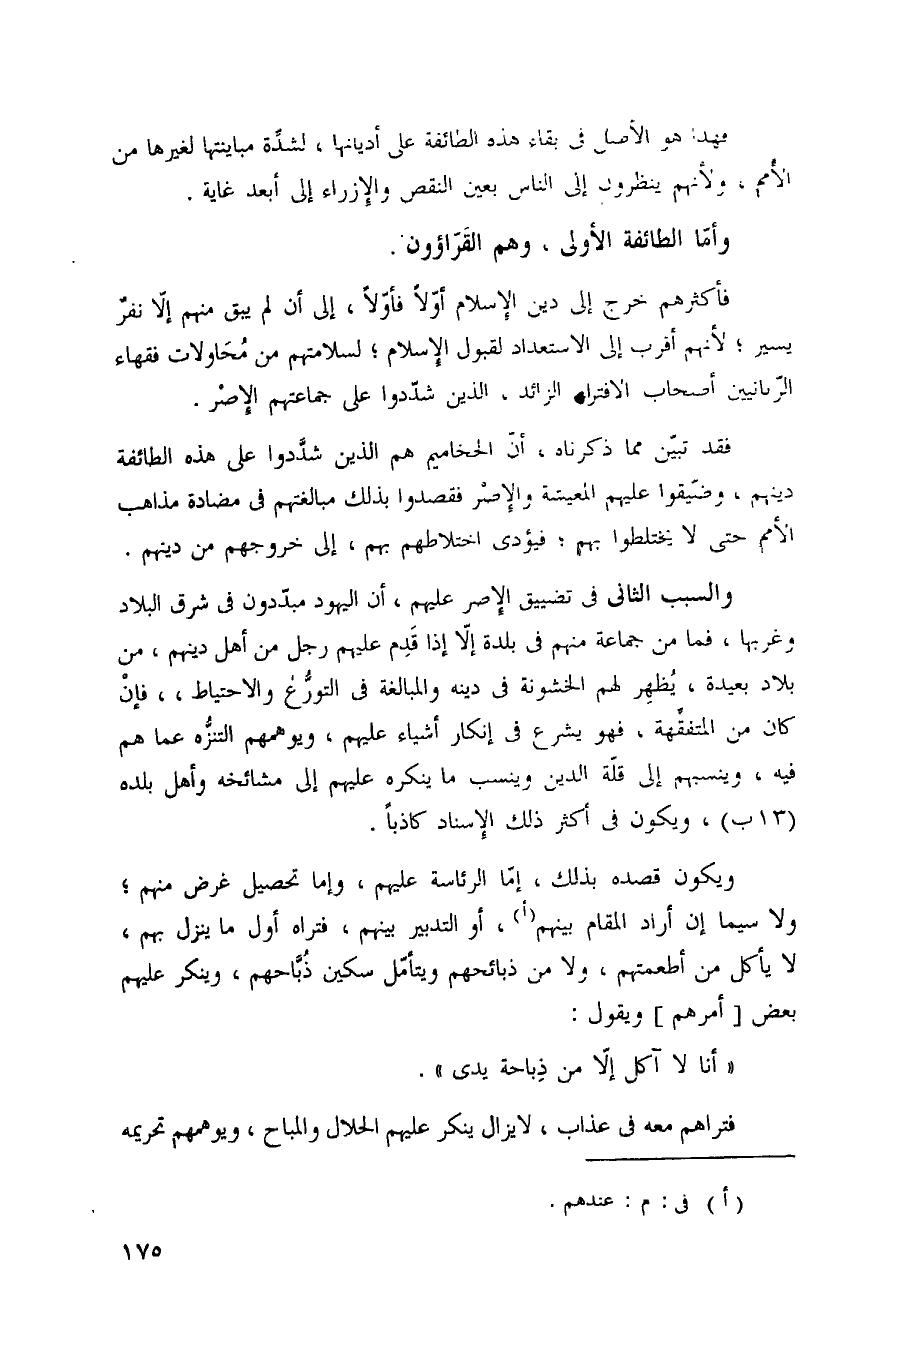 فهذا هو الأصل فى بقاء هذه الطائفة على أديانها ، لشدَّة مباينتها لغيرها من
الأُمم ، ولأنهم ينظرون إلى الناس بعين النقص والإزراء إلى أبعد غاية .
وأمّا الطائفة الأولى ، وهم القَرّاؤون .
فأكثرهم خرج إلى دين الإسلام أوّلاً فأوّلاً ، إلى أن لم يبق منهم إلّا نفرٌ
يسير ؛ لأنهم أقرب إلى الاستعداد لقبول الإسلام ؛ لسلامتهم من مُحَاولات فقهاء
الرّبانيين أصحاب الافتراء الزائد ، الذين شدّدوا على جماعتهم الإصْر .
فقد تبيّن مما ذكرناه ، أنّ الحخاميم هم الذين شدَّدوا على هذه الطائفة
دينهم ، وضيّقوا عليهم المعيشة والإصْر فقصدوا بذلك مبالغتهم فى مضادة مذاهب
الأمم حتى لا يختلطوا بهم ؛ فيؤدى اختلاطهم بهم ، إلى خروجهم من دينهم .
والسبب الثانى فى تضييق الإصر عليهم ، أن اليهود مبدّدون فى شرق البلاد
وغربها ، فما من جماعة منهم فى بلدة إلّا إذا قَدِم عليهم رجل من أهل دينهم ، من
بلاد بعيدة ، يُظهِر لهم الخشونة فى دينه والمبالغة فى التورُّع والاحتياط ، ، فإنْ
كان من المتفقِّهة ، فهو يشرع فى إنكار أشياء عليهم ، ويوهمهم التنزُّه عما هم
فيه ، وينسبهم إلى قلّة الدين وينسب ما ينكره عليهم إلى مشائخه وأهل بلده
(١٣ب) ، ويكون فى أكثر ذلك الإسناد كاذباً .
ويكون قصده بذلك ، إمّا الرئاسة عليهم ، وإما تحصيل غرض منهم ؛
ولا سيما إن أراد المقام بينهم(أ) ، أو التدبير بينهم ، فتراه أول ما ينزل بهم ،
لا يأكل من أطعمتهم ، ولا من ذبائحهم ويتأمّل سكين ذُبَّاحهم ، وينكر عليهم
بعض [ أمرهم ] ويقول :
« أنا لا آكل إلّا من ذِباحة يدى » .
فتراهم معه فى عذاب ، لايزال ينكر عليهم الحلال والمباح ، ويوهمهم تحريمه
( أ ) فى : م : عندهم .
١٧٥